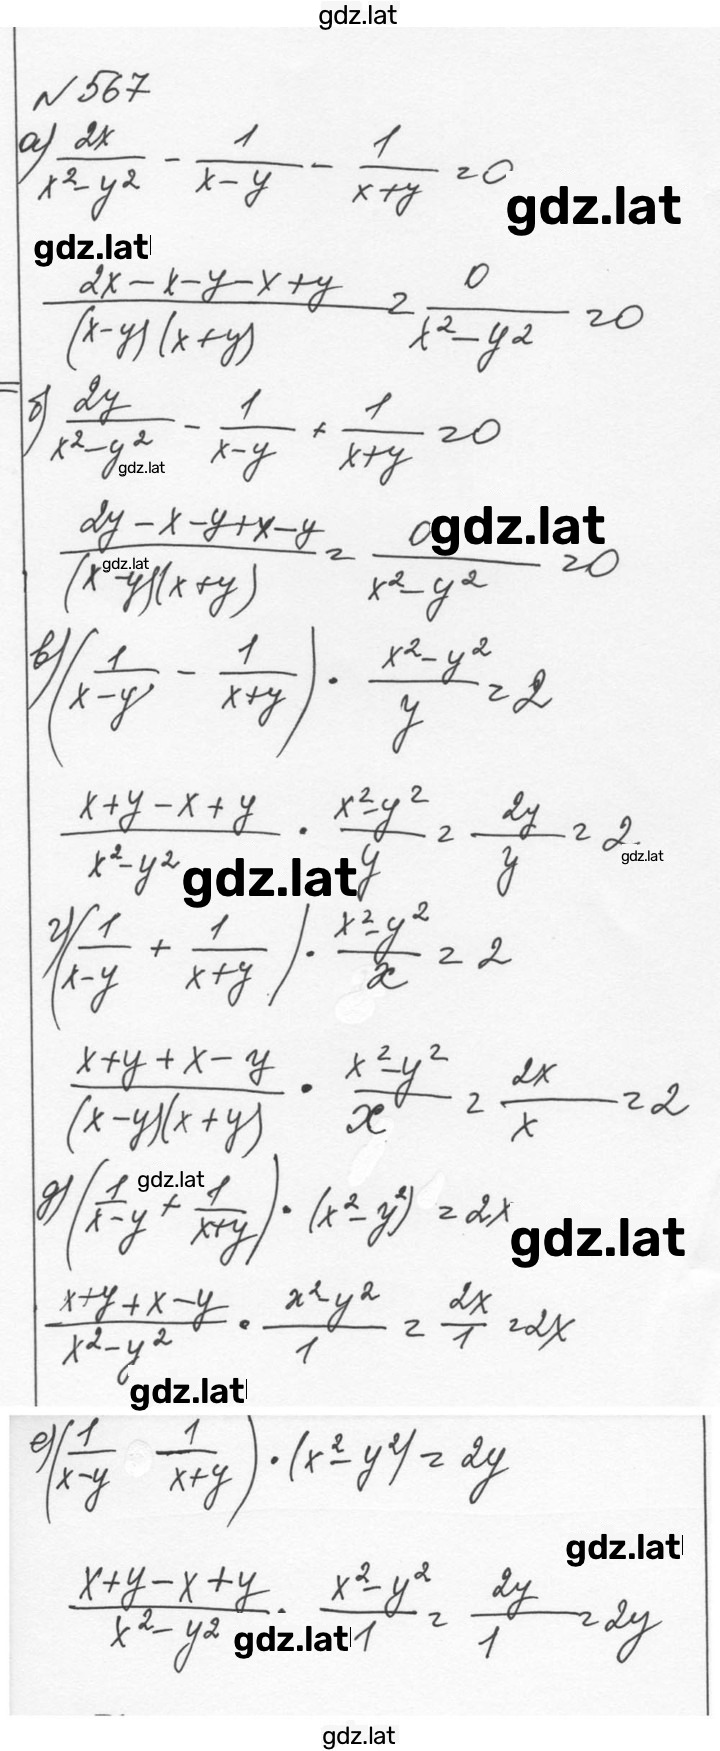 gdz.lat
№ 567
а) 2x/(x²-y²) - 1/(x-y) - 1/(x+y) = 0
gdz.lat
gdz.lat
(2x-x-y-x+y)/((x-y)(x+y)) = 0/(x²-y²) = 0
б) 2y/(x²-y²) - 1/(x-y) + 1/(x+y) = 0
gdz.lat
(2y-x-y+x-y)/((x-y)(x+y)) = 0/(x²-y²) = 0
gdz.lat
gdz.lat
в) (1/(x-y) - 1/(x+y)) · (x²-y²)/y = 2
(x+y-x+y)/(x²-y²) · (x²-y²)/y = 2y/y = 2.
gdz.lat
gdz.lat
г) (1/(x-y) + 1/(x+y)) · (x²-y²)/x = 2
(x+y+x-y)/((x-y)(x+y)) · (x²-y²)/x = 2x/x = 2
gdz.lat
д) (1/(x-y) + 1/(x+y)) · (x²-y²) = 2x
gdz.lat
(x+y+x-y)/(x²-y²) · (x²-y²)/1 = 2x/1 = 2x
gdz.lat
е) (1/(x-y) 1/(x+y)) · (x²-y²) = 2y
gdz.lat
(x+y-x+y)/(x²-y²) · (x²-y²)/1 = 2y/1 = 2y
gdz.lat
gdz.lat